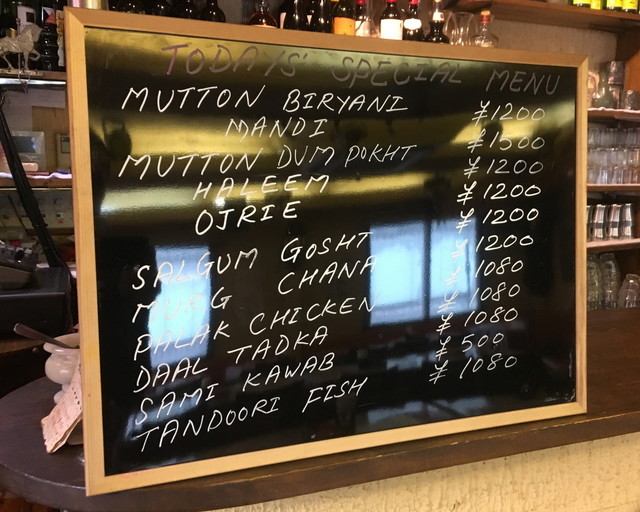 TODAYS' SPECIAL MENU
MUTTON BIRYANI ¥1200
MANDI ¥1500
MUTTON DUM POKHT ¥1200
HALEEM ¥1200
OJRIE ¥1200
SALGUM GOSHT ¥1200
MURG CHANA ¥1080
PALAK CHICKEN ¥1080
DAAL TADKA ¥1080
SAMI KAWAB ¥500
TANDOORI FISH ¥1080